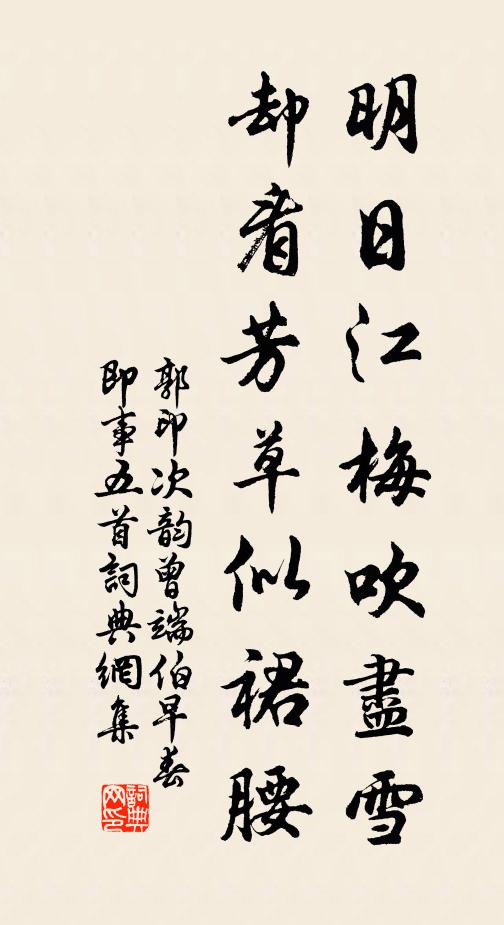 明日江梅吹盡雪
却看芳草似裙腰
郭印次韵曾端伯早春
即事五首詞典網集
詞典网印